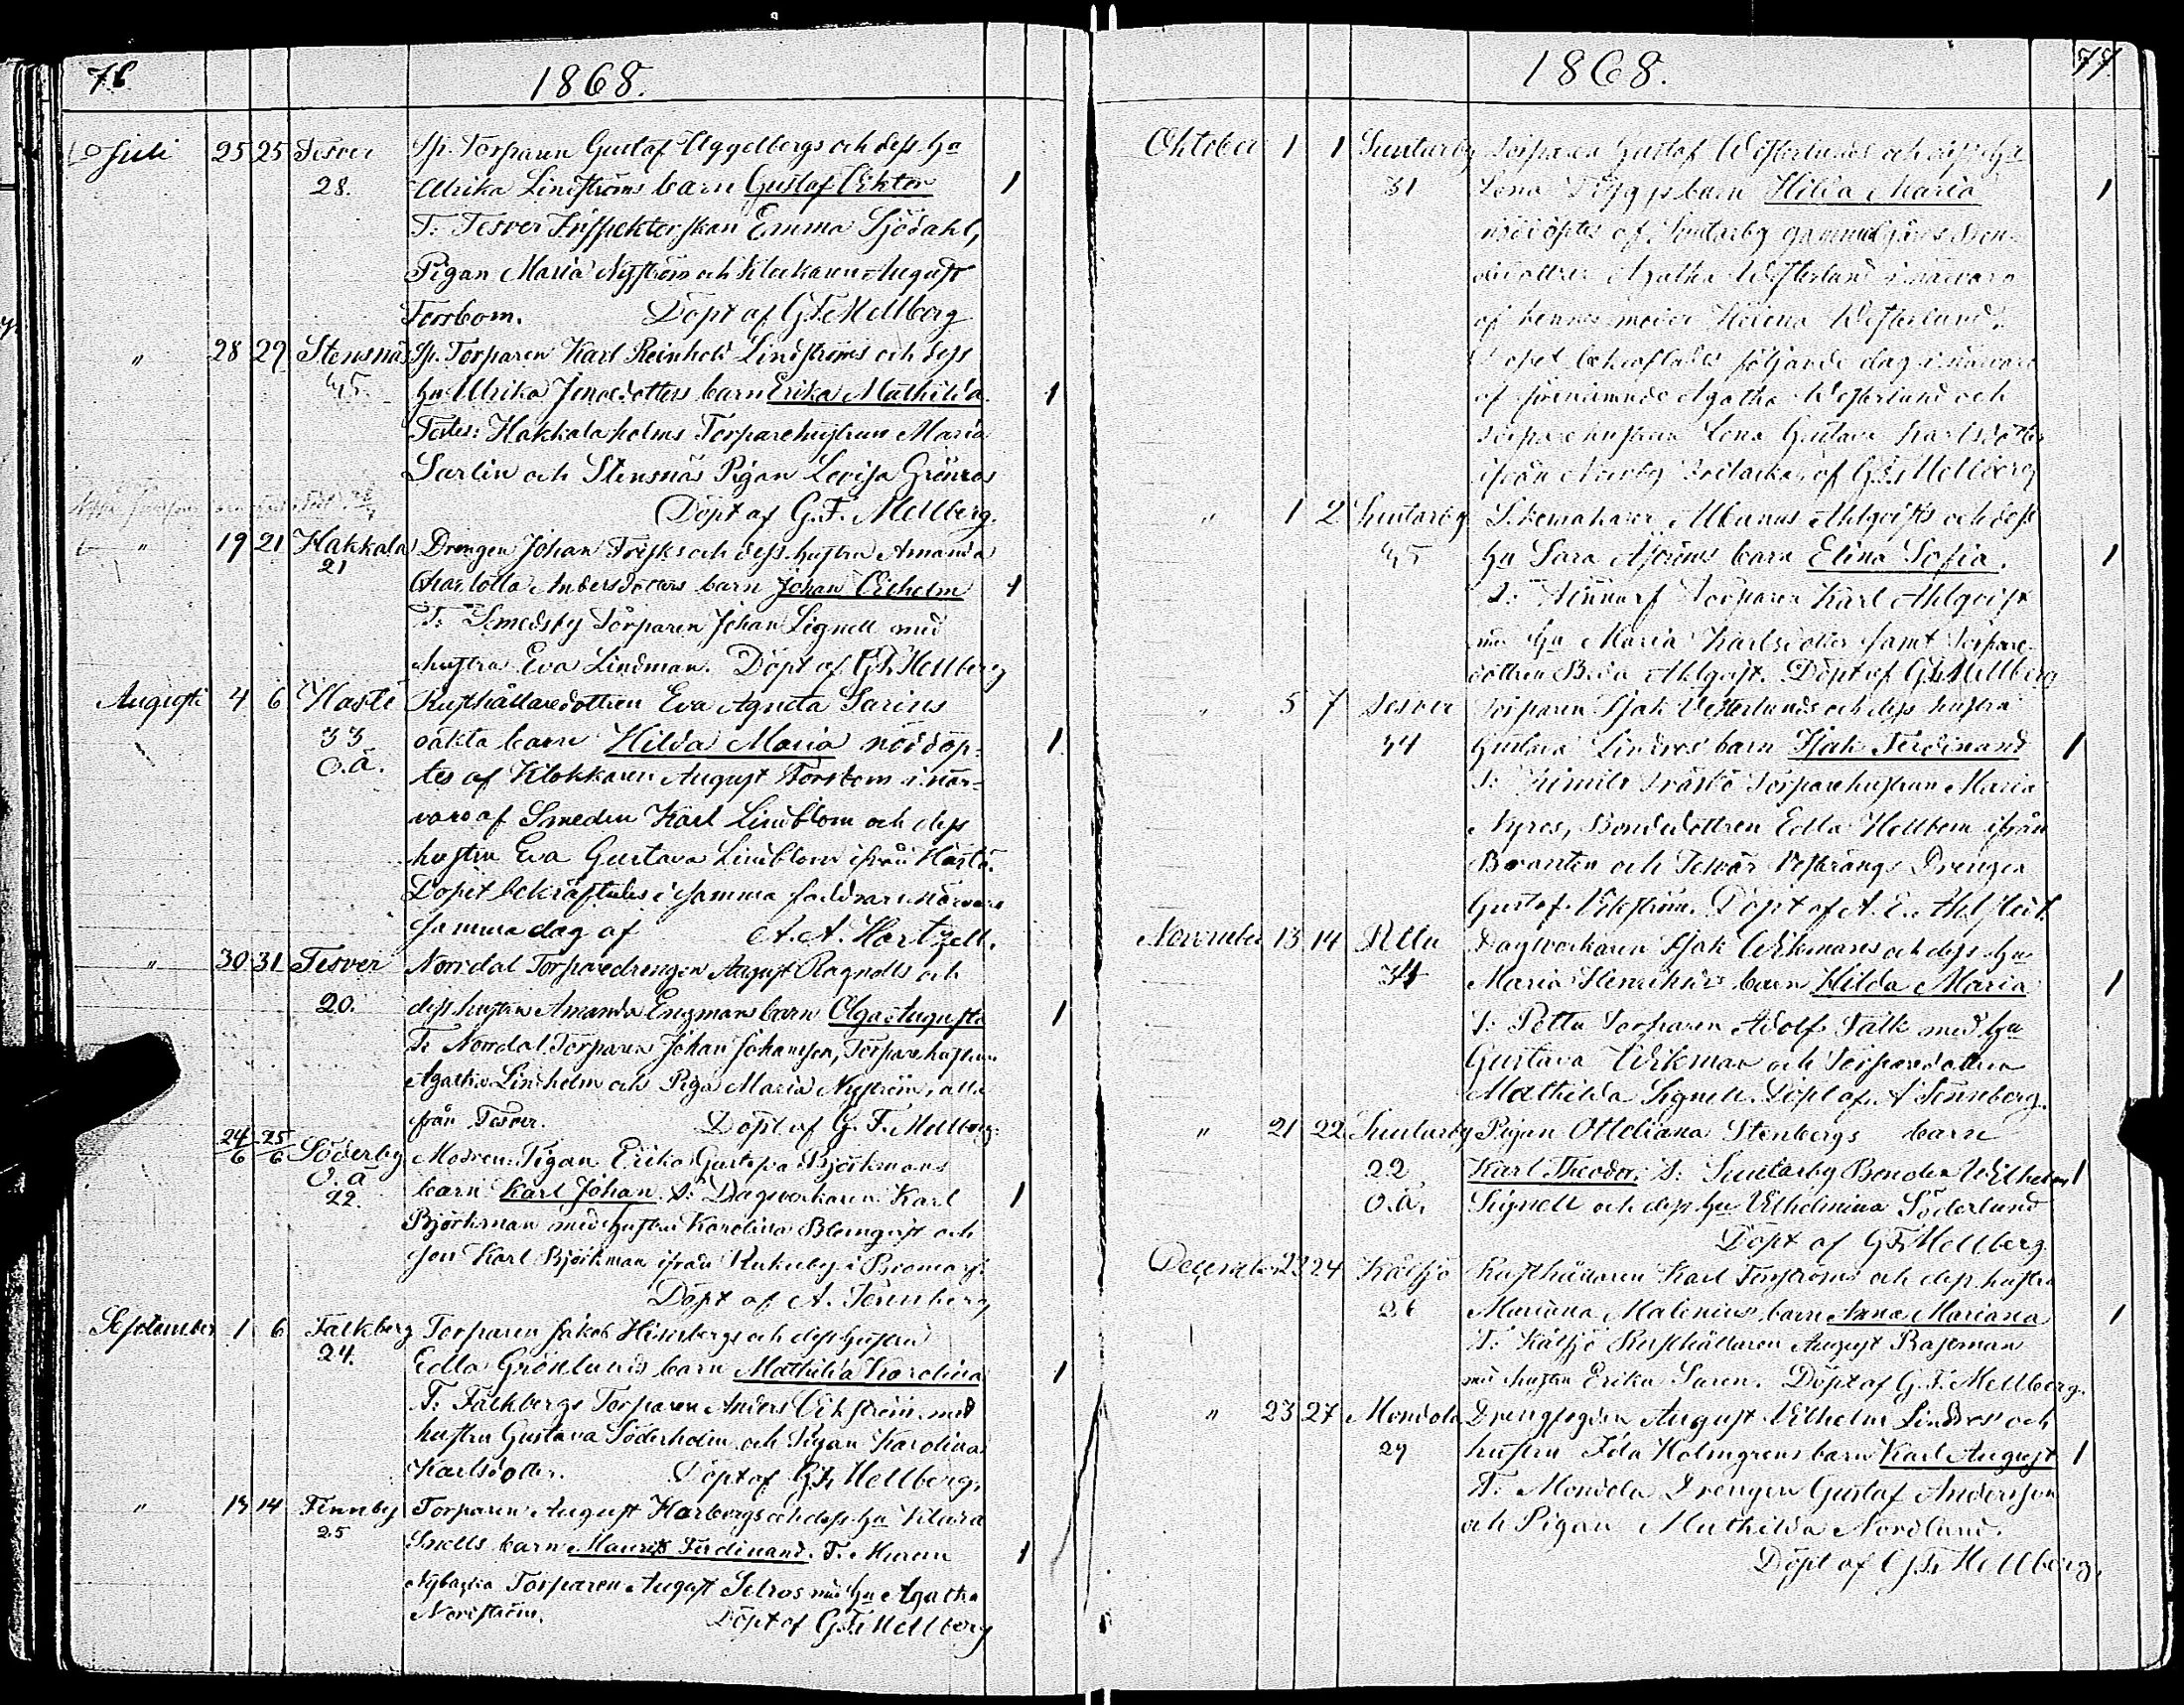 76
1868.
Juli 25 25 Tesver Sp. Torparen Gustaf Uggelbergs och dess Hu
28. Ulrika Lindströms barn Gustaf Viktor 1
T. Tesver Inspektorskan Emma Sjödahl,
Pigan Maria Nyström och Klockaren August
Forsbom. Döpt af G.F. Mellberg
" 28 29 Stensnäs Sp. Torparen Karl Reinhold Lindströms och dess
45 hu Ulrika Jonasdotters barn Erika Mathilda. 1
Testes: Hakkala holms Torparehustrun Maria
Sarlin och Stensnäs Pigan Lovisa Grönros
Döpt af G.F. Mellberg.
" 19 21 Hakkala Drengen Johan Frisks och dess hustru Amanda
21 Charlotta Andersdotters barn Johan Vilhelm 1
T. Smedsby Torparen Johan Lignell med
hustru Eva Lindman. Döpt af G.F. Mellberg
Augusti 4 6 Hästö Rusthållaredottren Eva Agneta Sarins
33 oäkta barn Hilda Maria nöddöp- 1
O.ä. tes af Klokkaren August Forsbom i när-
varo af Smeden Karl Lindblom och dess
hustru Eva Gustava Lindblom ifrån Hästö.
Dopet bekräftades i samma faddrars närvaro
samma dag af A.A. Hartzell.
" 30 31 Tesver Norrdal Torparedrengen August Ragnells och
20. dess hustru Amanda Engmans barn Olga Augusta 1
T. Norrdal Torparen Johan Johansson, Torparehustrun
Agatha Lindholm och Piga Maria Nyström, alla
från Tesver. Döpt af G.F. Mellberg.
24/6 25/6 Söderby Modren: Pigan Erika Gustava Björkmans
O.ä 22. barn Karl Johan. T: Dagsverkaren Karl 1
Björkman med hustru Karolina Blomqvist och
son Karl Björkman ifrån i Bromarf.
Döpt af A. Tennberg
September 1 6 Falkberg Torparen Jakob Hisinbergs och dess hustru
24. Edla Grönlunds barn Mathilda Karolina 1
T: Falkbergs Torparen Anders Vikström med
hustru Gustava Söderholm och Pigan Karolina
Karlsdotter. Döpt af G.F. Mellberg.
" 13 14 Finnby Torparen August Karlbergs och dess hu Klara
25 Snells barn Maurits Ferdinand. T. 1
Nybacka Torparen August Selros med hu Agatha
Nordström. Döpt af G.F. Mellberg
1868.
77
Oktober 1 1 Suutarby Torparen Gustaf Westerlunds och dess hu
31 Lena barn Hilda Maria 1
nöddöptes af Suutarby gammelgårds Bon-
dedottren Agatha Westerlund i närvaro
af hennes moder Helena Westerlund.
Dopet bekräftades följande dag i närvaro
af förenämnde Agatha Westerlund och
Torparehustrun Lena Gustava Karlsdotter
ifrån af G.F. Mellberg
" 1 2 Suutarby Skomakaren Albanus Ahlqvists och dess
45 hu Sara barn Elina Sofia. 1
T: Torparen Karl Ahlqvist
med hu Maria Karlsdotter samt Torpare-
dottren Ahlqvist. Döpt af G.F. Mellberg
" 5 7 Tesver Torparen Isak Vesterlunds och dess hustru
44 Gustava Lindros barn Isak Ferdinand 1
T: Kimito Torparehustrun Maria
Nyros, Bondedottren Edla Hellbom ifrån
och Tesvär Drengen
Gustaf Vikström. Döpt af A.E.
November 13 14 Pettu Dagsverkaren Isak Wikmans och dess hu
34 Maria barn Hilda Maria 1
T: Pettu Torparen Adolf Falk med hu
Gustava Wikman och Torparedottren
Mathilda Lignell. Döpt af A Tennberg.
" 21 22 Suutarby Pigan Otteliana Stenbergs barn
22 Karl Theodor. T: Suutarby Bonden Wilhelm 1
O.ä. Lignell och dess hu Vilhelmina Söderlund
Döpt af G.F. Mellberg
December 23 24 Kålsjö Rusthållaren Karl Fernströms och dess hustru
26 Mariana Malenius barn Anna Mariana 1
T: Kålsjö Rusthållaren August
med hustru Erika Saren. Döpt af G.F. Mellberg.
" 23 27 Mondola Drengfogden August Vilhelm Lindros och
29 hustru Ida Holmgrens barn Karl August 1
T. Mondola Drengen Gustaf Andersson
och Pigan Mathilda Nordlund.
Döpt af G.F. Mellberg.